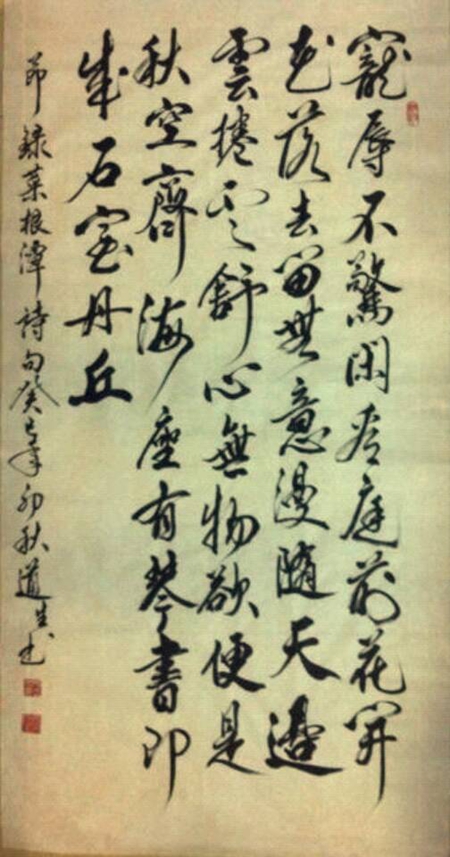 寵辱不驚閑看庭前花開
花落去留無意漫隨天邊
雲捲雲舒心無物欲便是
秋空霽海座有琴書即
成石室丹丘
節錄菜根潭詩句癸巳年初秋道生書